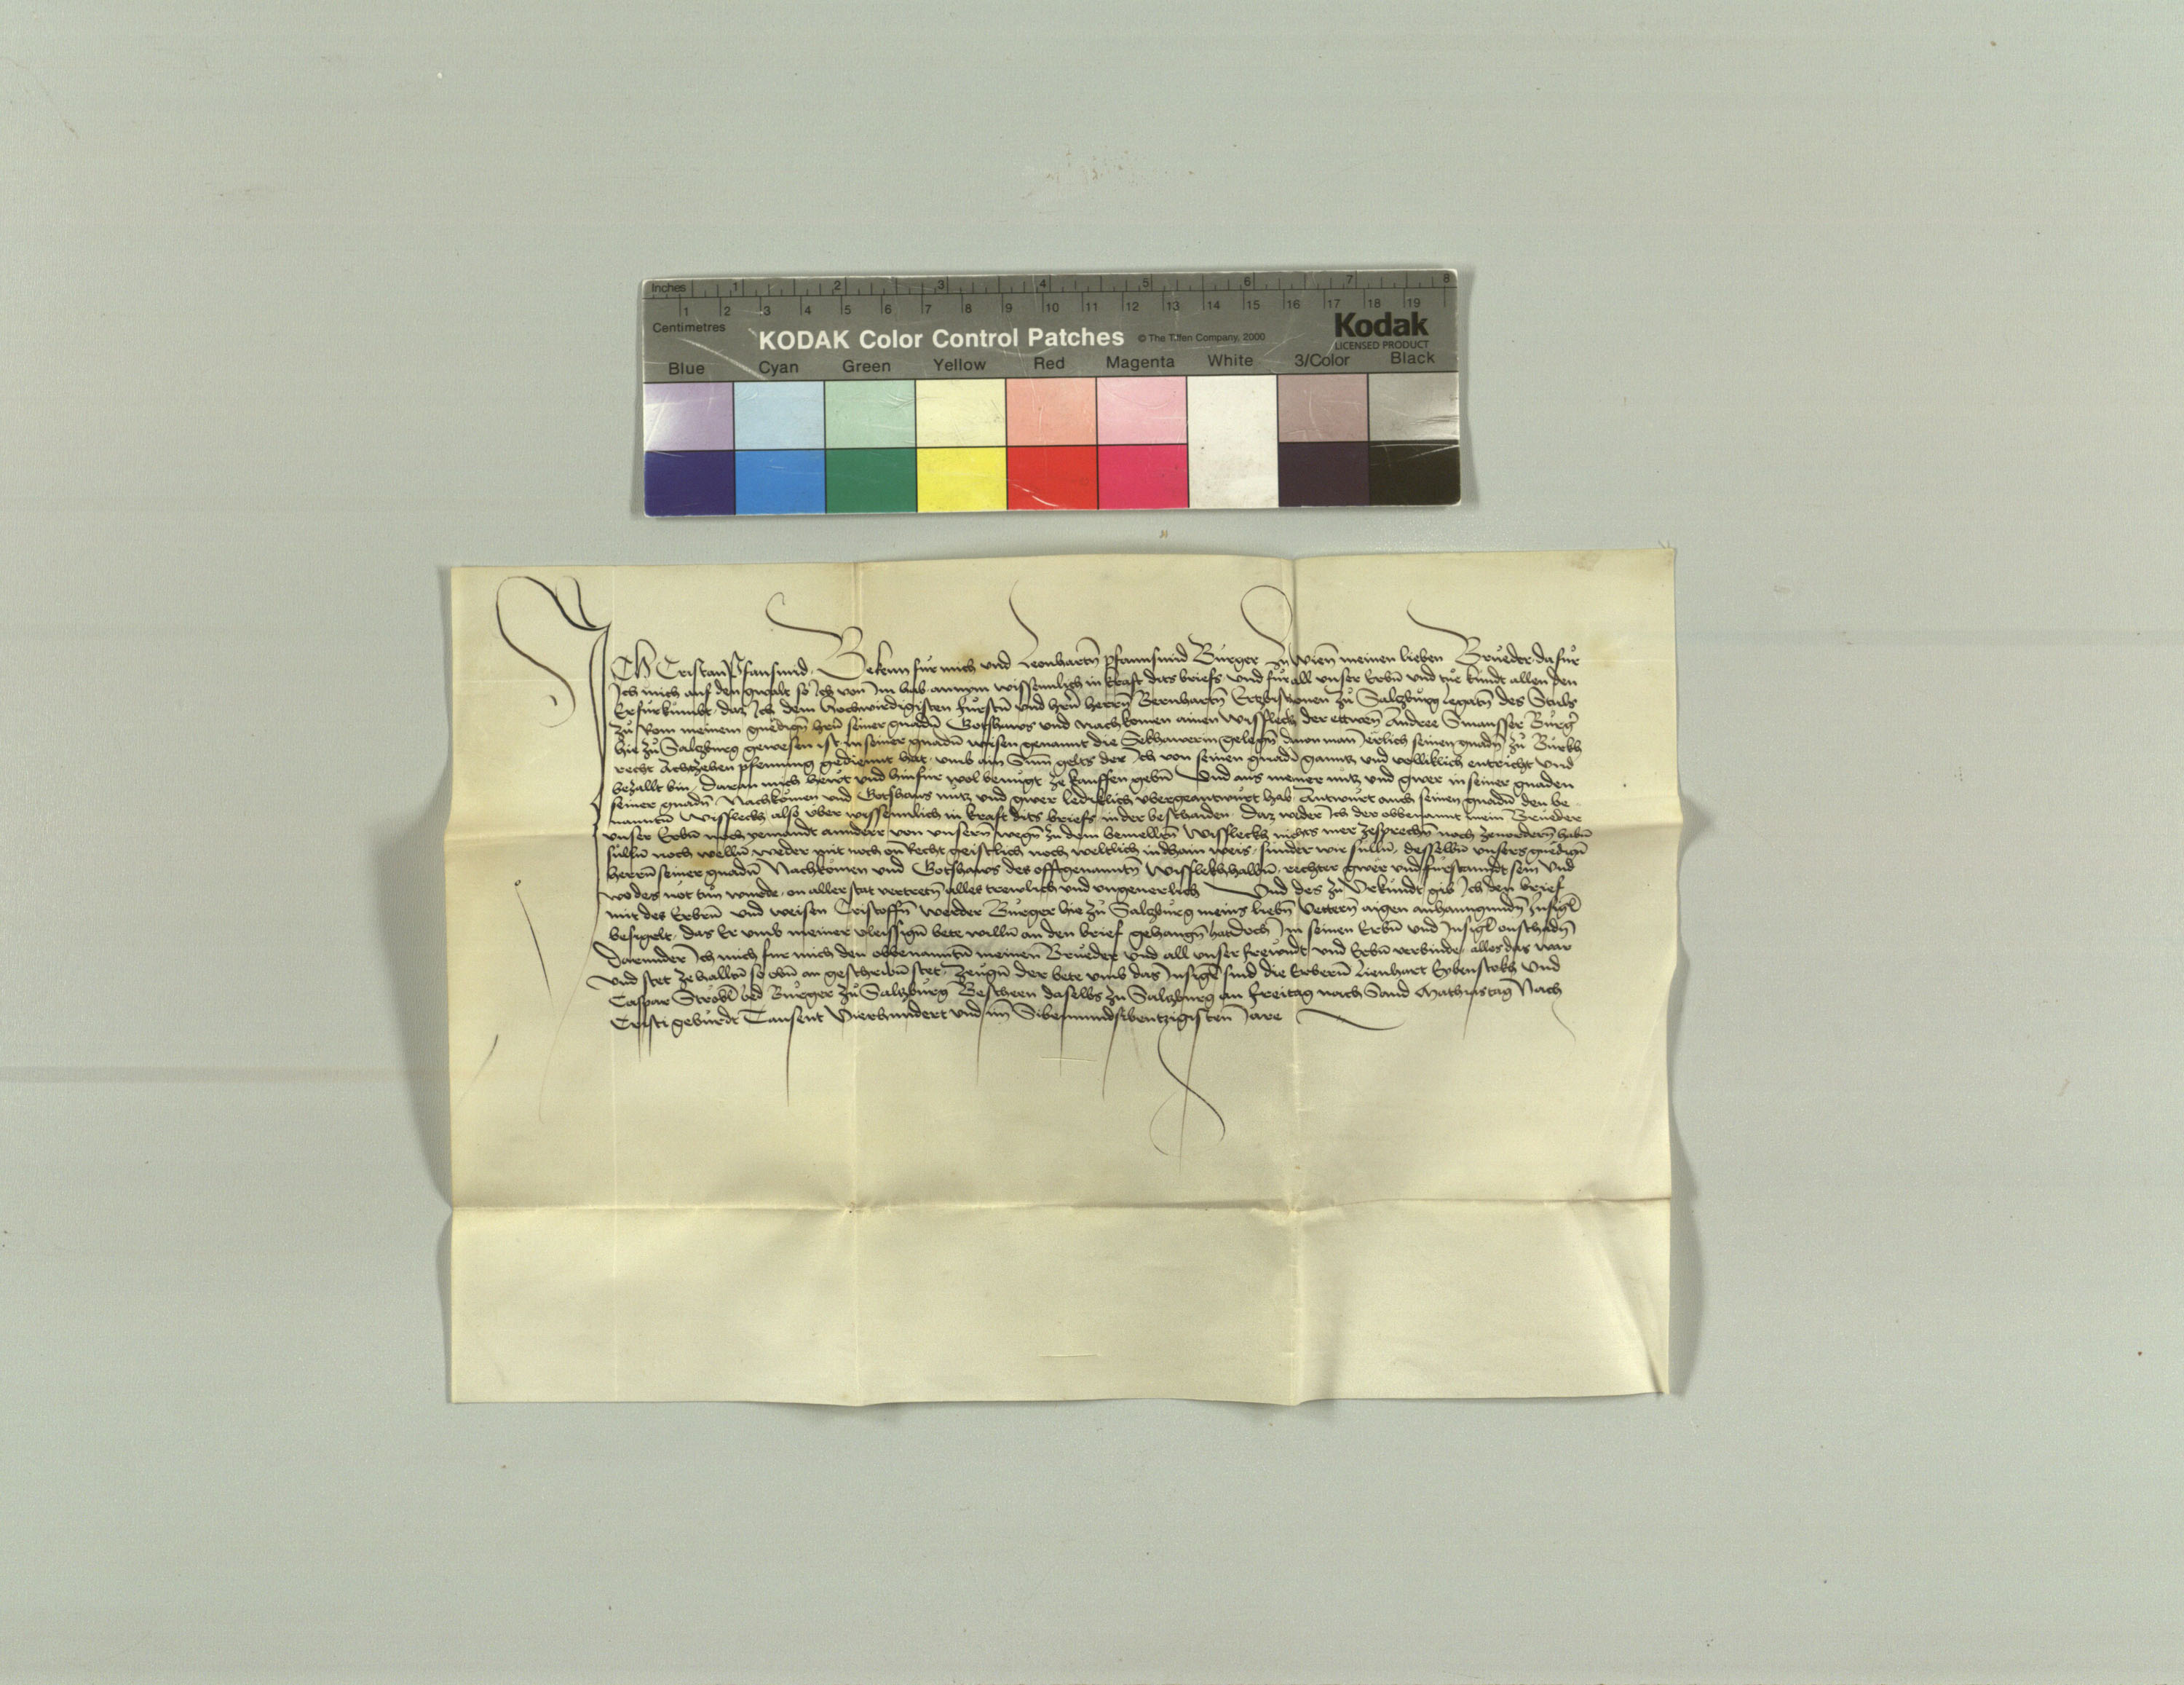 Inches 1 2 3 4 5 6 7 8
1 2 3 4 5 6 7 8 9 10 11 12 13 14 15 16 17 18 19
Centimetres
KODAK Color Control Patches © The Tiffen Company, 2000 Kodak
LICENSED PRODUCT
Blue Cyan Green Yellow Red Magenta White 3/Color Black
ICH Cristan Pfansmid Bekenn für mich und Leonhartn̄ pfannsmid Burger zu Wienn̄ meinen lieben Brueder dafür
Ich mich auf den gwalt so Ich von Im hab annym wissennlich in kraft dits briefs und für all unser Erbn̄ und tue kundt allen den
Es fürkumbt daz Ich dem Hochwirdigisten fürstn̄ und hrn̄ herrn̄ Bernhartn̄ Ertzbischouen zu Salzburg legatn̄ des Stuls
zu Rom meinem gnedign̄ hrn̄ seiner gnadn̄ Gotshaws und nachkomen ainen Wissfleckh der ettwen̄ Andree Burg̉
hie zu Salzburg gewesen ist in seiner gnadn̄ wisen genannt die gelegn̄ dauon man Järlich seinen gnadn̄ zu Burkh
recht Achtzehen pfenning gedient hat umb ain Sum̄ gelts der Ich von seinen gnadn̄ ganntz und volliklich entricht und
bezallt bin daran mich heut und hinfür wol benugt ze kauffen gebn̄ Und aus meiner nutz und gwer in seiner gnaden
seiner gnadn̄ Nachkomen und Gotshaws nutz und gwer lediklich ubergeantwurt hab Antwurt auch seinen gnadn̄ den be
nanntn̄ Wissfleckh also uber wissennlich in kraft dits briefs in der beschaiden Daz weder Ich der obbenannt mein Brueder
unser Erbn̄ noch yemandt annderr von unsern̄ wegn̄ zu dem bemelltn̄ Wissfleckh nichts mer zesprechn̄ noch zeuordern̄ habn̄
sulln̄ noch welln̄ weder mit noch on Recht geistlich noch weltlich in dhain weis sunder wir sulln̄ desselbn̄ unsers gnedign̄
herrn̄ seiner gnadn̄ Nachkomen und Gotshaws des offtgenanntn̄ Wissfleckh halbn̄ rechter gwer und fürstanndt sein und
wo des not tun wurde on aller stat vertretn̄ alles trewlich und ungeuerlich Und des zu Urkundt gib Ich den brief
mit des Erbern̄ und weisen Cristoffn̄ Werder Burger hie zu Salzburg meins liebn̄ Vettern̄ aigen anhanngundn̄ Insigl̄
besigelt das Er umb meiner vleissign̄ bete willn̄ an den brief gehangn̄ hat doch Im seinen Erbn̄ und Insigl̄ onschadn̄
Darunder Ich mich für mich den obbenanntn̄ meinen Brueder und all unser frewndt und Erbn̄ verbinde alles das war
und stet zehalltn̄ so obn̄ an geschribn̄ stet Zeugn̄ der bete umb das Insigl̄ sind die Erbern̄ Lienhart und
Caspar Strobl̄ bed Burger zu Salzburg Beschehen daselbs zu Salzburg an freitag nach Sand Mathiastag Nach
Cristi geburdt Tausent Vierhundert und im̄ Sibenundsibentzigisten̄ Jare